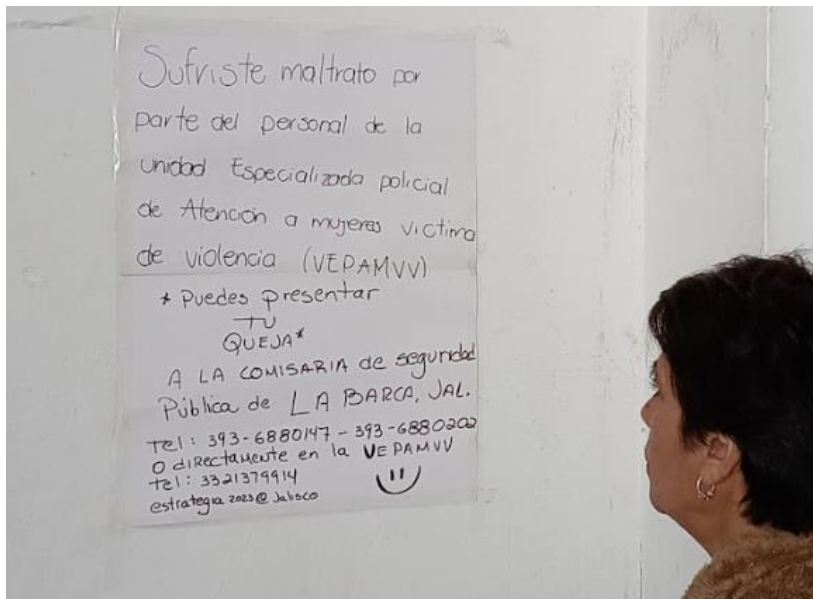 Sufriste maltrato por
parte del personal de la
unidad Especializada policial
de Atención a mujeres victima
de violencia (VEPAMVV)
* Puedes presentar
TU
QUEJA*
A LA COMISARIA de seguridad
Pública de LA BARCA, JAL.
Tel: 393-6880147 - 393-6880202
O diRectamente en la VEPAMVV
tel: 3321379914
estrategia 2023@ Jalisco